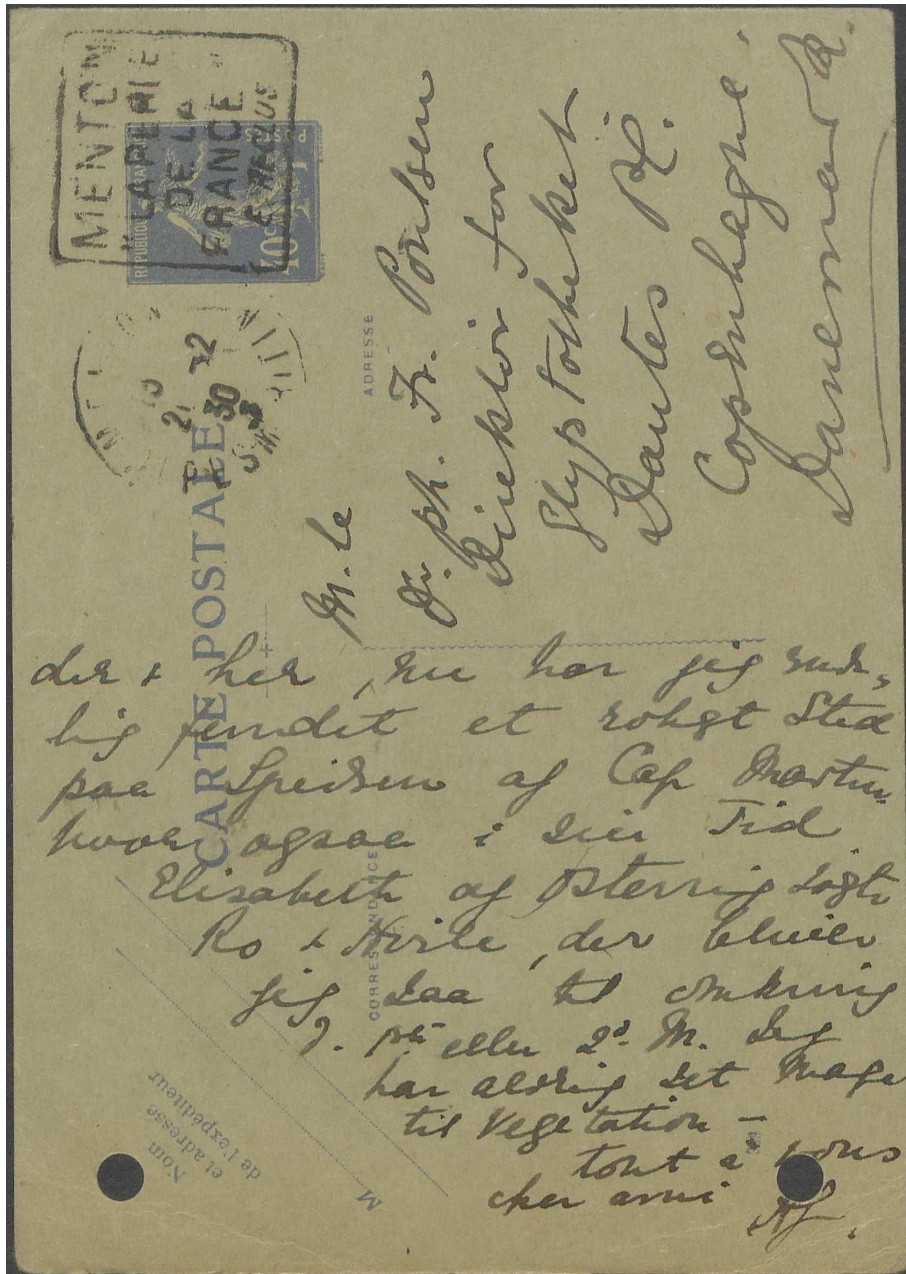 MENTON
"LA PERLE
DE LA
FRANCE"
REPUBLIQUE FRANÇAISE
POSTES
40c
21
30
CARTE POSTALE
ADRESSE
M. le
Dr. ph. Fr. Poulsen
Direktør for
Glyptotheket
Dantes Pl.
Copenhague.
Danemark.
CORRESPONDANCE
der & her, nu har jeg ende-
lig fundet et roligt Sted
paa Spidsen af Cap Martin
hvor ogsaa i sin Tid
Elisabeth af Østerrig søgte
Ro & Hvile, der bliver
jeg saa til omkring
d. 1ste eller 2d. M. Jeg
har aldrig set Mage
til Vegetation –
tout à vous
cher ami
Nom
et adresse
de l'expéditeur
M